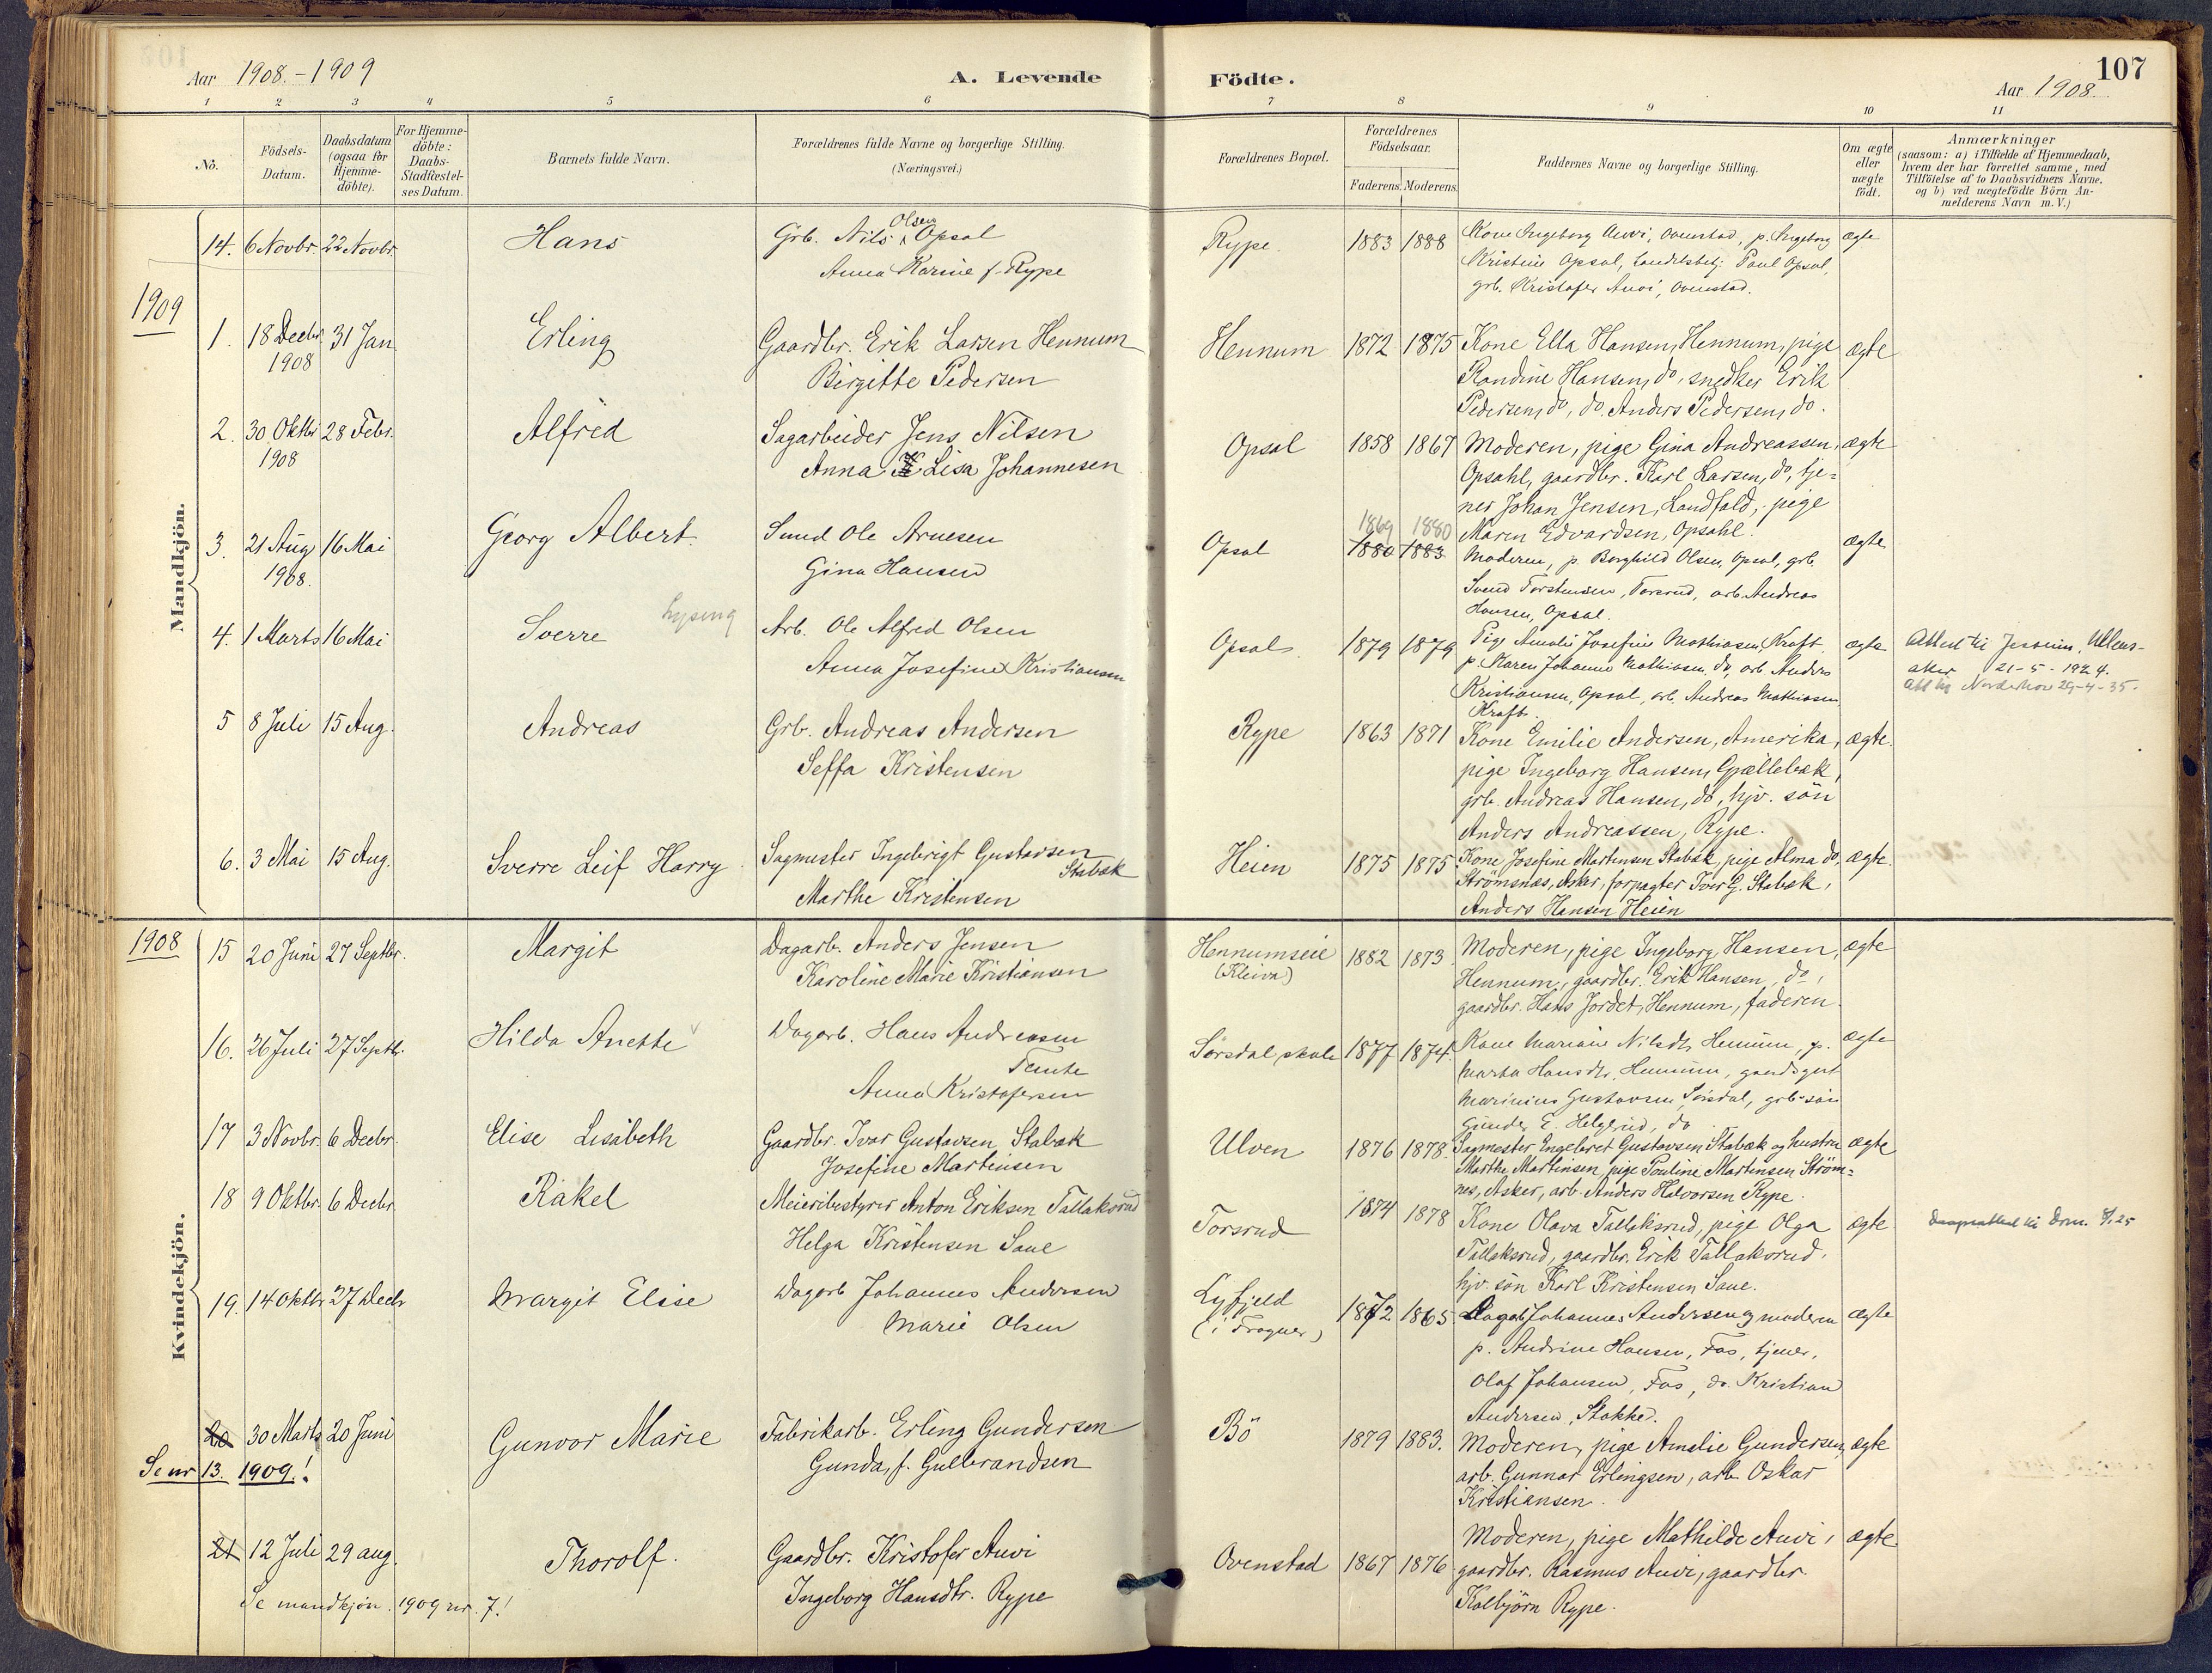 Aar 1908.-1909
A. Levende
Födte.
107
Aar 1908.
1 2 3 4 5 6 7 8 9 10 11
No.
Födsels-Datum.
Daabsdatum (ogsaa for Hjemme-döbte).
For Hjemme-döbte: Daabs-Stadfæstel-ses Datum.
Barnets fulde Navn.
Forældrenes fulde Navne og borgerlige Stilling. (Næringsvei.)
Forældrenes Bopæl.
Forældrenes Födselsaar.
Faderens. Moderens.
Faddernes Navne og borgerlige Stilling.
Om ægte eller uægte födt.
Anmærkninger
(saasom: a) i Tilfælde af Hjemmedaab,
hvem der har forrettet samme, med
Tilföielse af to Daabsvidners Navne,
og b) ved uægtefödte Börn An-
melderens Navn m. V.)
Mandkjön.
14. 6 Novbr. 22 Novbr. Hans Grb. Nils Olsen Opsal Rype 1883 1888 Kone Ingeborg Auvi, Ovenstad, p. Ingeborg ægte
Anna Karine f. Rype Kristine Opsal, Landelsbetj. Paul Opsal,
grb. Kristofer Auvi, Ovenstad.
1909
1. 18 Decbr. 31 Jan Erling Gaardbr. Erik Larsen Hennum Hennum 1872 1875 Kone Ella Hansen, Hennum, pige ægte
1908 Birgitte Pedersen Randine Hansen, do, snedker Erik
Pedersen, do, do. Anders Pedersen, do.
2. 30 Oktbr 28 Febr. Alfred Sagarbeider Jens Nilsen Opsal 1858 1867 Moderen, pige Gina Andreassen, ægte
1908 Anna Lisa Johannesen Opsahl, gaardbr. Karl Larsen, do, tje-
ner Johan Jensen, Landfald, pige
Maren Edvardsen, Opsahl.
3. 21 Aug 16 Mai Georg Albert. Smed Ole Arnesen Opsal 1869 1880 1880 1883 Moderen, p. Borghild Olsen, Opsal, grb. ægte
1908. Gina Hansen Svend Torstensen, Torsrud, arb. Andreas
Hansen, Opsal.
4. 1 Marts 16 Mai Sverre Lysing Arb. Ole Alfred Olsen Opsal 1879 1879 Pige Amalie Josefine Mathiasen, Kraft ægte Attest til Jessheim, Ullens-
Anna Josefine Kristiansen p. Karen Johanne Mathiasen, do, arb. Anders aker 21-5-1924.
Kristiansen, Opsal, arb. Andreas Mathiasen Att til Norderhov 29-4-35.
Kraft.
5 8 Juli 15 Aug. Andreas Grb. Andreas Andersen Rype 1863 1871 Kone Emilie Andersen, Amerika, ægte.
Seffa Kristensen pige Ingeborg Hansen, Gjællebæk,
grb. Andreas Hansen, do, hjv. sön
Anders Andreassen, Rype.
6. 3 Mai 15 Aug. Sverre Leif Harry Sagmester Ingebrigt Gustavsen Stabæk Heien 1875 1875 Kone Josefine Martensen Stabæk, pige Alma do, ægte.
Marthe Kristensen Strömsnæs, Asker, forpagter Iver G. Stabæk,
Anders Hansen Heien
1908
Kvindekjön.
15 20 Juni 27 Septbr. Margit Dagarb. Anders Jensen Hennumseie 1882 1873 Moderen, pige Ingeborg Hansen, ægte
Karoline Marie Kristiansen (Kleiva) Hennum, gaardbr. Erik Hansen, do,
gaardbr. Hans Jordet, Hennum, faderen.
16. 26 Juli 27 Septbr. Hilda Anette Dagarb. Hans Andreasen Sørsdal skole 1877 1874. Kone Mariane Nilsdtr. Hennum, p. ægte
Tømte Marta Hansdtr. Hennum, gaardsgut
Anna Kristofersen Marinius Gustavsen Sørsdal, grb. søn
Gunder E. Helgerud, do
17 3 Novbr. 6 Decbr. Elise Lisabeth Gaardbr. Ivar Gustavsen Stabæk Ulven 1876 1878. Sagmester Engebret Gustavsen Stabæk og hustru ægte
Josefine Martinsen Marthe Martinsen, pige Pauline Martinsen Ström-
nes, Asker, arb. Anders Halvorsen Rype.
18 9 Oktbr. 6 Decbr Rakel Meieribestyrer Anton Eriksen Tallaksrud Torsrud 1874 1878 Kone Olava Tallaksrud, pige Olga ægte. Daapsattest til Drm. 25
Helga Kristensen Saue Tallaksrud, gaardbr. Erik Tallaksrud,
hjv. sön Karl Kristensen Saue.
19. 14 Oktbr 27 Decbr Margit Elise Dagarb Johannes Andersen Lyfjeld 1872 1865 Dagarb Johannes Andersen og moderen ægte
Marie Olsen (i Frogner) p. Andrine Hansen, Fos, tjener,
Olaf Johansen, Fos, do. Kristian
Andersen, Stokke.
20 30 Marts 20 Juni Gunvor Marie Fabrikarb. Erling Gundersen Bö 1879 1883. Moderen, pige Amalie Gundersen, ægte
Se nr 13. 1909! Gunda, f. Gulbrandsen arb. Gunnar Erlingsen, arb Oskar
Kristiansen.
21 12 Juli 29 aug. Thorolf. Gaardbr. Kristofer Auvi Ovenstad 1867 1876 Moderen, pige Mathilde Auvi, ægte.
Se mandkjøn. 1909 nr. 7! Ingeborg Hansdtr. Rype gaardbr. Rasmus Auvi, gaardbr.
Kolbjörn Rype.